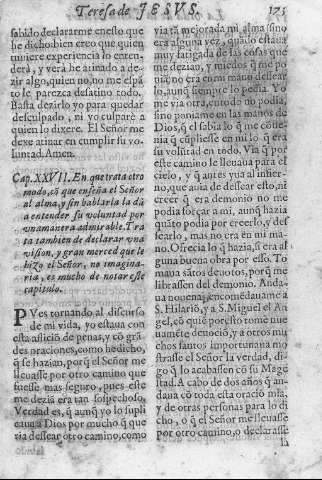 Teresa de JESVS. 175
sabido declararme enesto que
he dicho bien creo que quien
tuuiere experiencia lo enten-
dera, y verà he atinado a de
zir algo, quien no, no me espã
to le parezca desatino todo.
Basta dezirlo yo para quedar
desculpado, ni yo culparè a
quien lo dixere. El Señor me
dexe atinar en cumplir su vo-
luntad. Amen.
Cap. XXVII. En que trata otro
modo, cõ que enseña el Señor
al alma, y sin hablarla la dà
a entender su voluntad por
vna manera admirable. Tra
ta tambien de declarar vna
vision, y gran merced que le
hizo el Señor, no imagina-
ria, es mucho de notar este
capitulo.
PVes tornando al discurso
de mi vida, yo estaua con
esta aflicciõ de penas, y cõ grã
des oraciones, como he dicho,
q̃ se hazian, porq̃ el Señor me
lleuasse por otro camino que
fuesse mas seguro, pues este
me dezia eran tan sospechoso.
Verdad es, q̃ aunq̃ yo lo supli
caua a Dios por mucho q̃ que
ria dessear otro camino, como
via tã mejorada mi alma (sino
era alguna vez, quãdo estaua
muy fatigada de las cosas que
me dezian, y miedos q̃ me po
niã) no era en mi mano dessear
lo, aunq̃ siempre lo pedia. Yo
me via otra, en todo no podia,
sino poniame en las manos de
Dios, q̃ el sabia lo q̃ me coue-
nia q̃ cupliesse en mi lo q̃ era
su voluntad en todo. Via q̃ por
este camino le lleuaua para el
cielo, y q̃ antes yua al infier-
no, que auia de dessear esto, ni
creer q̃ era demonio no me
podia forçar a mi, aunq̃ hazia
quãto podia por creerlo, y des
searlo, mas no era en mi ma-
no. Ofrecia lo q̃ hazia, si era al
guna buena obra por esso. To
maua sãtos deuotos, porq̃ me
librassen del demonio. Anda-
ua nouenas, encomẽdauame a
S. Hilariõ, y a S. Miguel el An
gel, cõ quiẽ por esto tome nue
uamẽte deuociõ, y a otros mu
chos santos importunaua mo
strasse el Señor la verdad, di-
go q̃ lo acabassen cõ su Mage
stad. A cabo de dos años q̃ an-
daua cõ toda esta oraciõ mia,
y de otras personas para lo di
cho, o q̃ el Señor me lleuasse
por otro camino, o declarasse
la